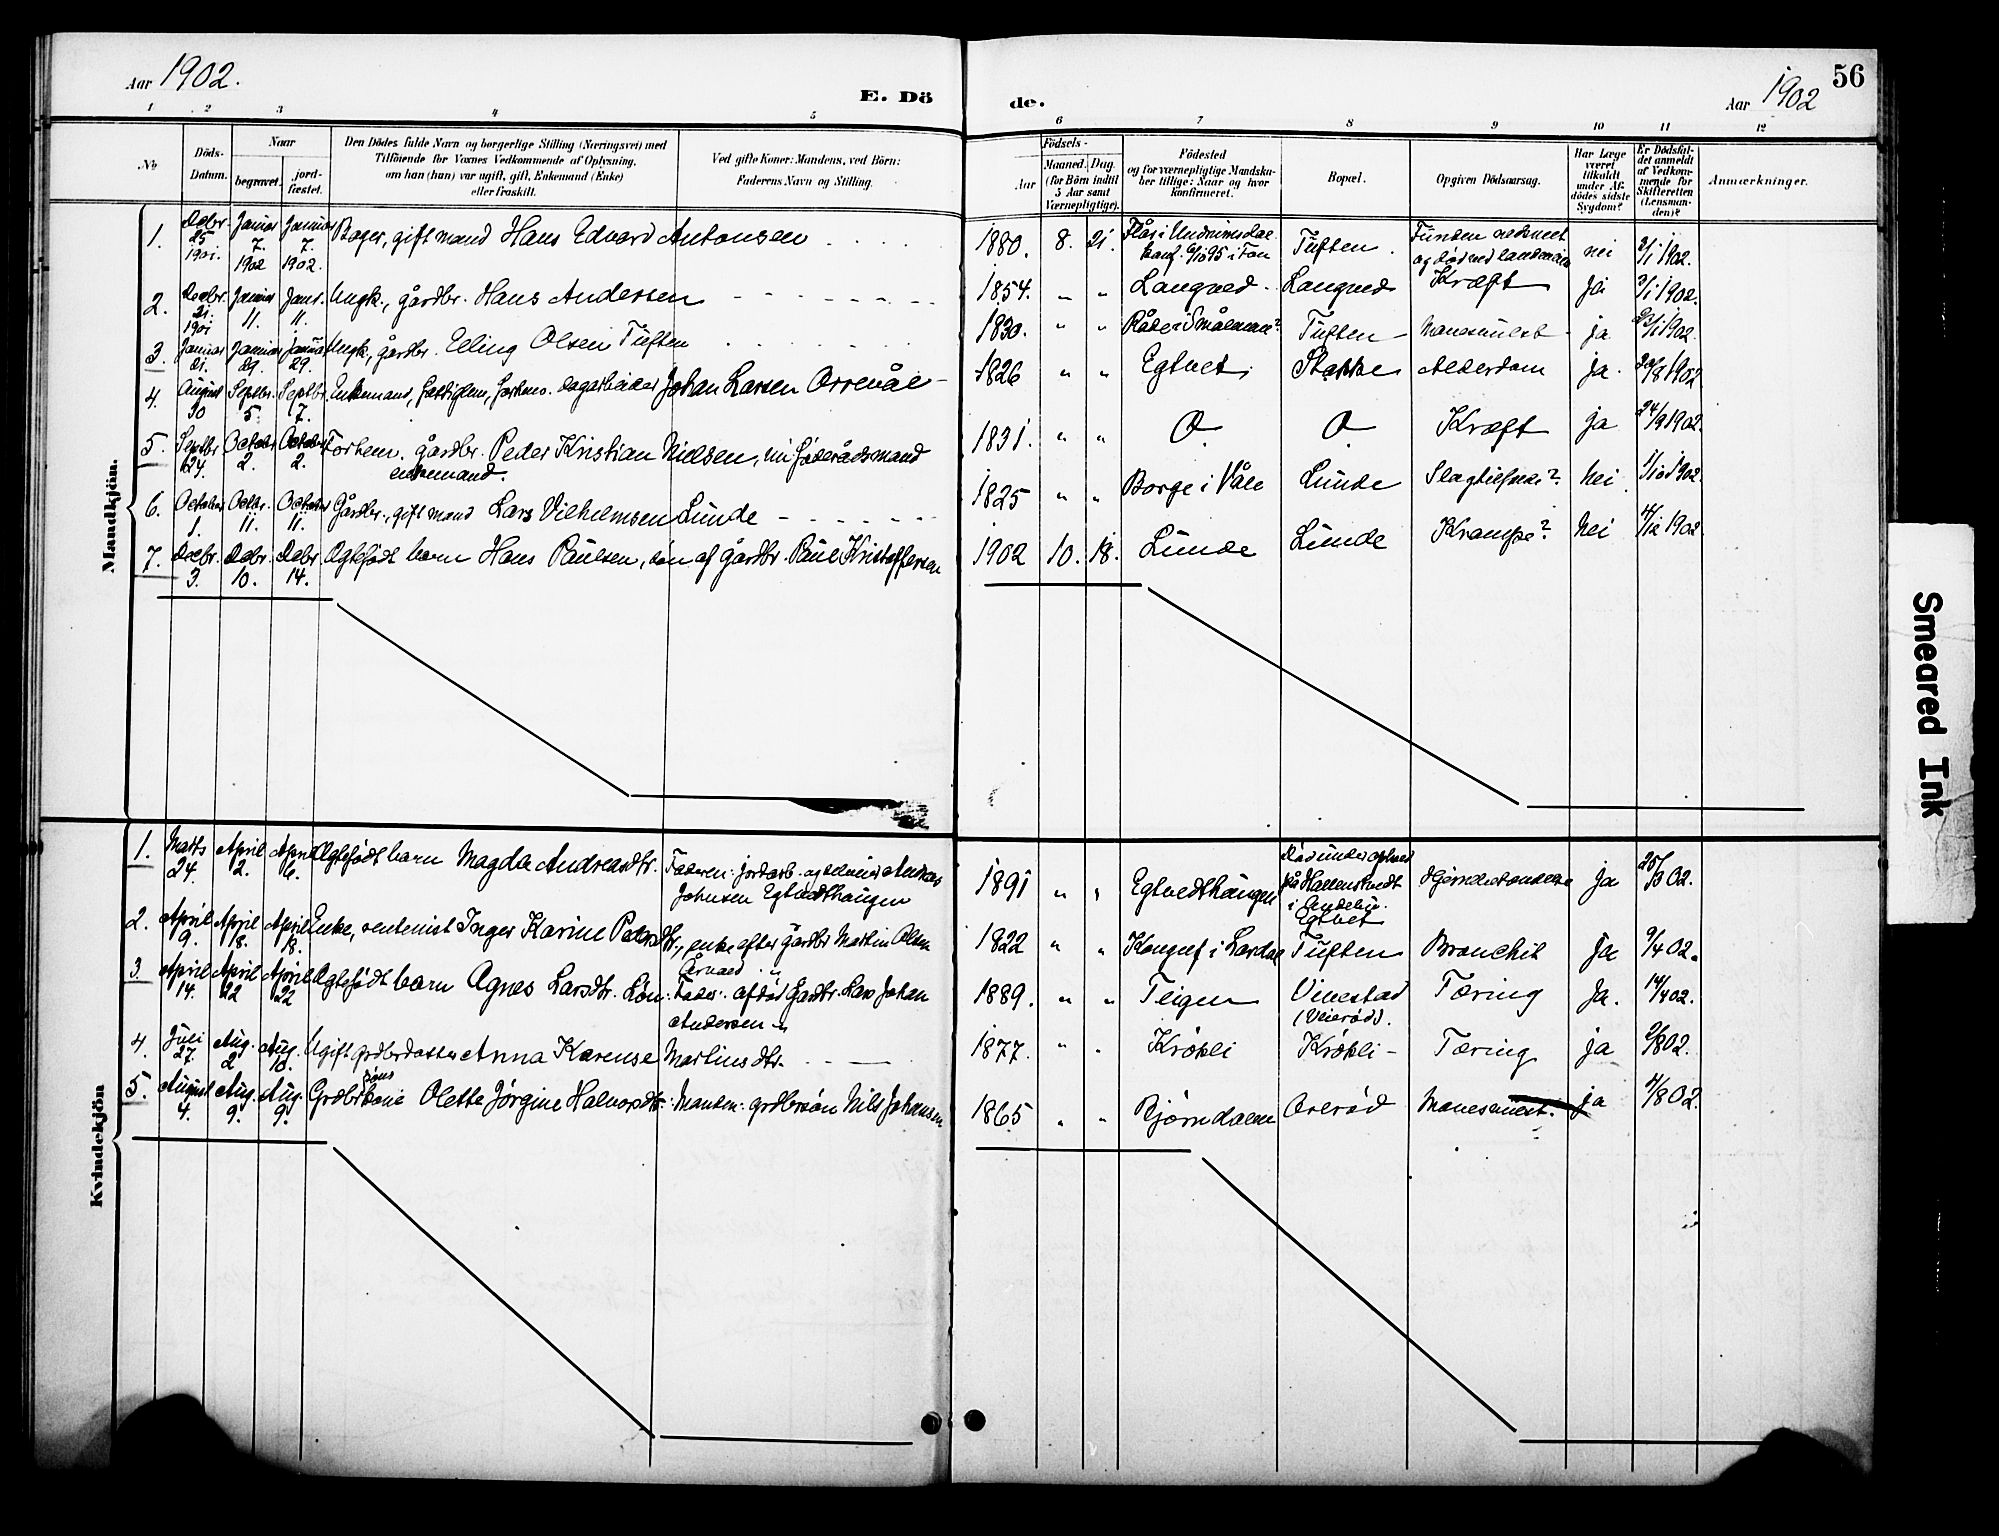 Aar 1902.
E. Döde.
Aar 1902
56
1 2 3 4 5 6 7 8 9 10 11 12
No
Döds-Datum.
Naar
begravet.
jord-fæstet.
Den Dödes fulde Navn og borgerlige Stilling (Næringsvei) med
Tilföiende for Voxnes Vedkommende af Oplysning,
om han (hun) var ugift, gift, Enkemand (Enke)
eller fraskilt.
Ved gifte Koner: Mandens, ved Börn:
Faderens Navn og Stilling.
Födsels-
Aar
Maaned. Dag.
(for Börn indtil
5 Aar samt
Værnepligtige).
Födested
og for værnepligtige Mandska-
ber tillige: Naar og hvor
konfirmeret.
Bopæl.
Opgiven Dödsaarsag.
Har Læge
været
tilkaldt
under Af-
dödes sidste
Sygdom?
Er Dödsfal-
det anmeldt
af Vedkom-
mende for
Skifteretten
(Lensman-
den)?
Anmærkninger.
Mandkjön.
1. Debr. 25 1901. Januar 7. 1902 Januar 7. 1902. Bager, gift mand Hans Edvard Antonsen 1880. 8. 21. Tuften. og død ved nei 2/1 1902.
2. Decbr. 21. 1901 Januar 11. Janr. 11. Ungk., gårdbr. Hans Andersen 1854. " " Langved Langved Kræft ja 3/1 1902.
3. Januar 21. Januar 29. Januar 29. Ungk., gårdbr. Elling Olsen Tuften 1830. " " Råde i Smålenene? Tuften ja 1902.
4. August 30 Septbr. 5. Septbr. 7. Enkemand, fattiglem, forhenv. dagarbeider Johan Larsen Orrevål 1826 " " Egtvet Stokke Alderdom ja. 1902
5. Septbr. 24. October 2. October 2. Forhenv. gårdbr. Peder Kristian Nielsen, nu føderådsmand
enkemand. 1831. " " O O Kræft ja 24/9 1902.
6. October 1. Octbr. 11. October 11. Gårdbr., gift mand Lars Vilhelmsen Lunde 1825 " " Borge i Våle Lunde nei 1/10 1902.
7. Decbr. 3. Debr. 10. Debr. 14. Ægtefødt barn Hans Paulsen, søn af gårdbr. Paul Kristoffersen 1902 10. 18. Lunde Lunde Krampe? Nei 4/12 1902.
Kvindekjön
1. Marts 24. April 2. April 6. Ægtefødt barn Magda Andreasdtr. Faderen: jordarb. og Andreas
Johnsen Egtvedthaugen 1891 " " Egtvedthaugen Død under ophold
på Hallenstvedt
i Andebu.
Egtvet ja 25/3 02.
2. April 9. April 18. April 18. Enke, rentenist Inger Karine Pedersdtr., enke efter gårdbr Martin Olsen 1822 " " i Lardal Tuften Bronchit ja 9/4 02.
3. April 14. April 22 April 22 Ægtefødt barn Agnes Larsdtr. Fader: afdød Gårdbr. Lars Johan
Andersen 1889. " " Teigen Vivestad
(Veierød). Tæring Ja. 14/4 02.
4. Juli 27. Aug. 2 Aug. 10. Ugift grdbrdatter Anna Karense Martinsdtr. 1877. " " Krøkli Krøkli Tæring ja 02.
5. August 4. Aug. 9. Aug. 9. Grdbrsønskone Olette Jørgine Halvorsdtr. Manden: grdbrsøn Nils Johansen 1865 " " Bjørndalen ja 4/8 02.
Smeared Ink